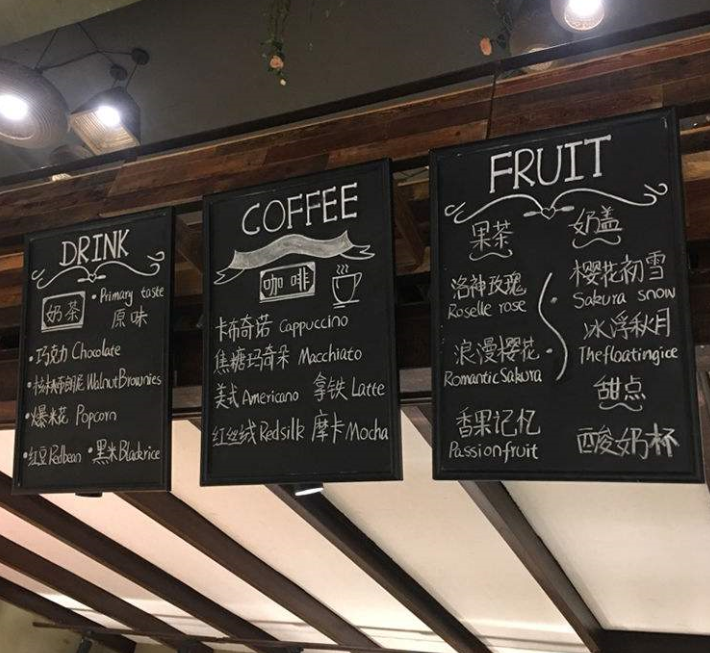 DRINK
奶茶
• Primary taste
原味
• 巧克力 Chocolate
• 核桃布朗尼 Walnut Brownies
• 爆米花 Popcorn
• 红豆 Redbean • 黑米 Blackrice
COFFEE
咖啡
卡布奇诺 Cappuccino
焦糖玛奇朵 Macchiato
美式 Americano 拿铁 Latte
红丝绒 Redsilk 摩卡 Mocha
FRUIT
果茶
洛神玫瑰
Roselle rose
浪漫樱花
Romantic Sakura
香果记忆
Passionfruit
奶盖
樱花初雪
Sakura snow
冰浮秋月
Thefloatingice
甜点
酸奶杯